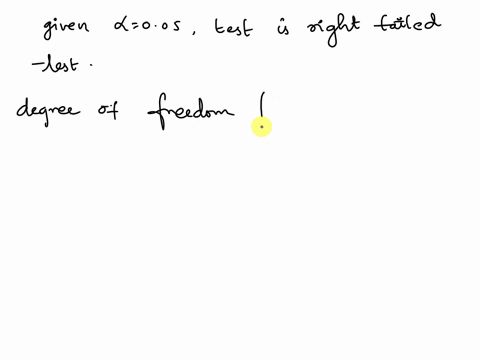 given α=0.05, test is right tailed
-test.
degree of freedom (